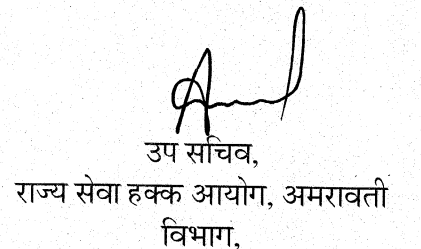 उप सचिव,
राज्य सेवा हक्क आयोग, अमरावती
विभाग,